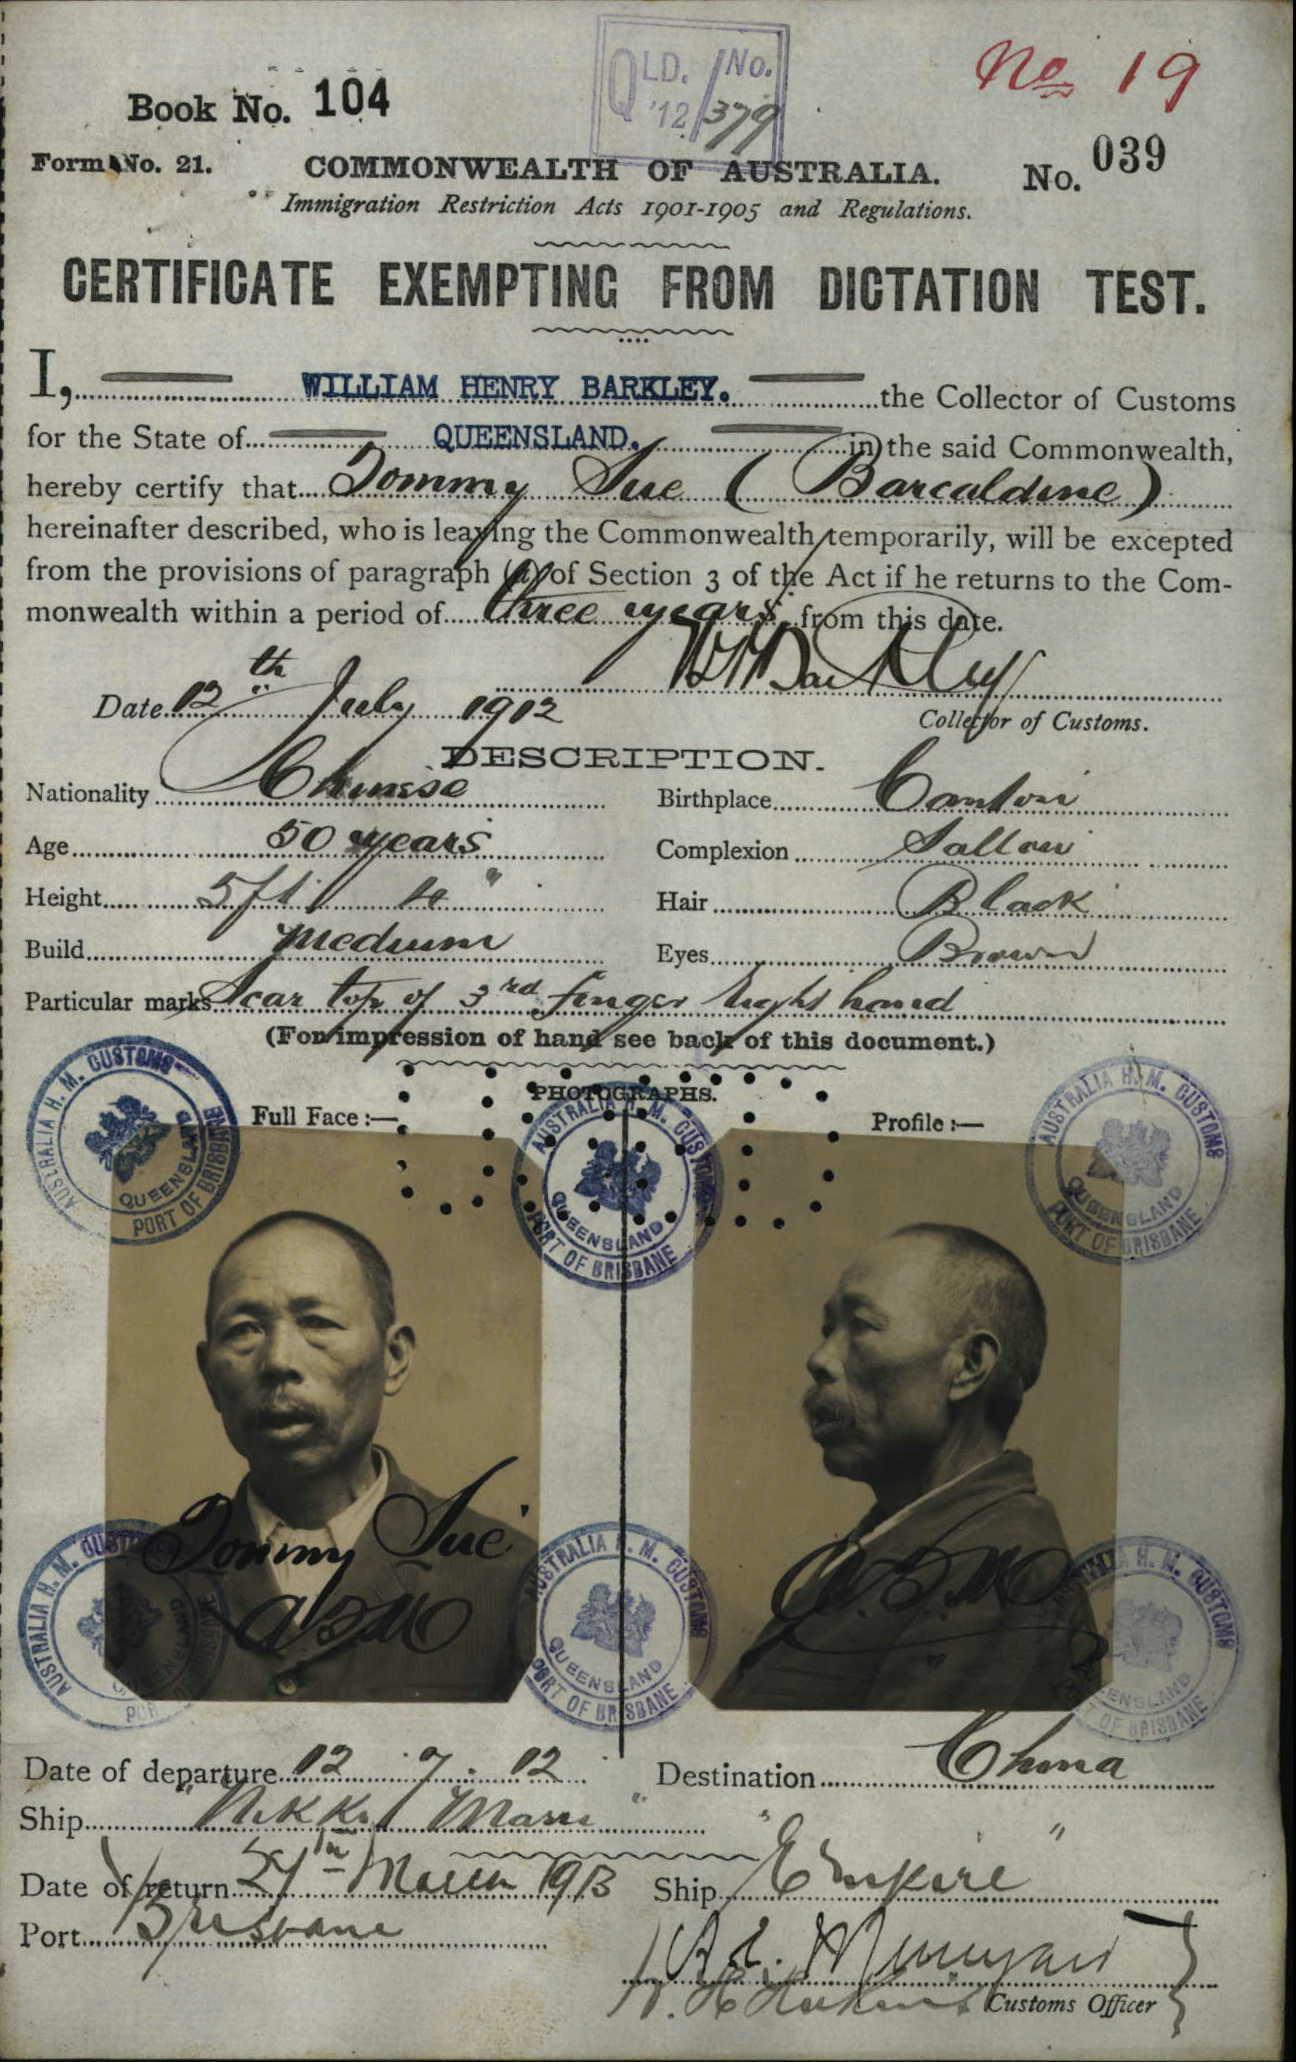 QLD. No.
'12/379
No 19
Book No. 104
Form No. 21.
COMMONWEALTH OF AUSTRALIA.
No. 039
Immigration Restriction Acts 1901-1905 and Regulations.
CERTIFICATE EXEMPTING FROM DICTATION TEST.
I, WILLIAM HENRY BARKLEY. the Collector of Customs
for the State of QUEENSLAND. in the said Commonwealth,
hereby certify that Tommy Sue (Barcaldine)
hereinafter described, who is leaving the Commonwealth temporarily, will be excepted
from the provisions of paragraph (a) of Section 3 of the Act if he returns to the Com-
monwealth within a period of three years from this date.
WHBarkley
Date 12th July 1912
Collector of Customs.
DESCRIPTION.
Nationality Chinese
Birthplace Canton
Age 50 years
Complexion Sallow
Height 5ft 4"
Hair Black
Build Medium
Eyes Brown
Particular marks Scar top of 3rd finger right hand
(For impression of hand see back of this document.)
PHOTOGRAPHS.
Full Face :—
Profile :—
AUSTRALIA H. M. CUSTOMS QUEENSLAND PORT OF BRISBANE
AUSTRALIA H. M. CUSTOMS QUEENSLAND PORT OF BRISBANE
AUSTRALIA H. M. CUSTOMS QUEENSLAND PORT OF BRISBANE
Tommy Sue
AUSTRALIA H. M. CUSTOMS QUEENSLAND PORT OF BRISBANE
Date of departure 12 . 7 . 12
Destination China
Ship "Nikko Maru"
Date of return 27th March 1913
Ship "Empire"
Port Brisbane
Customs Officer